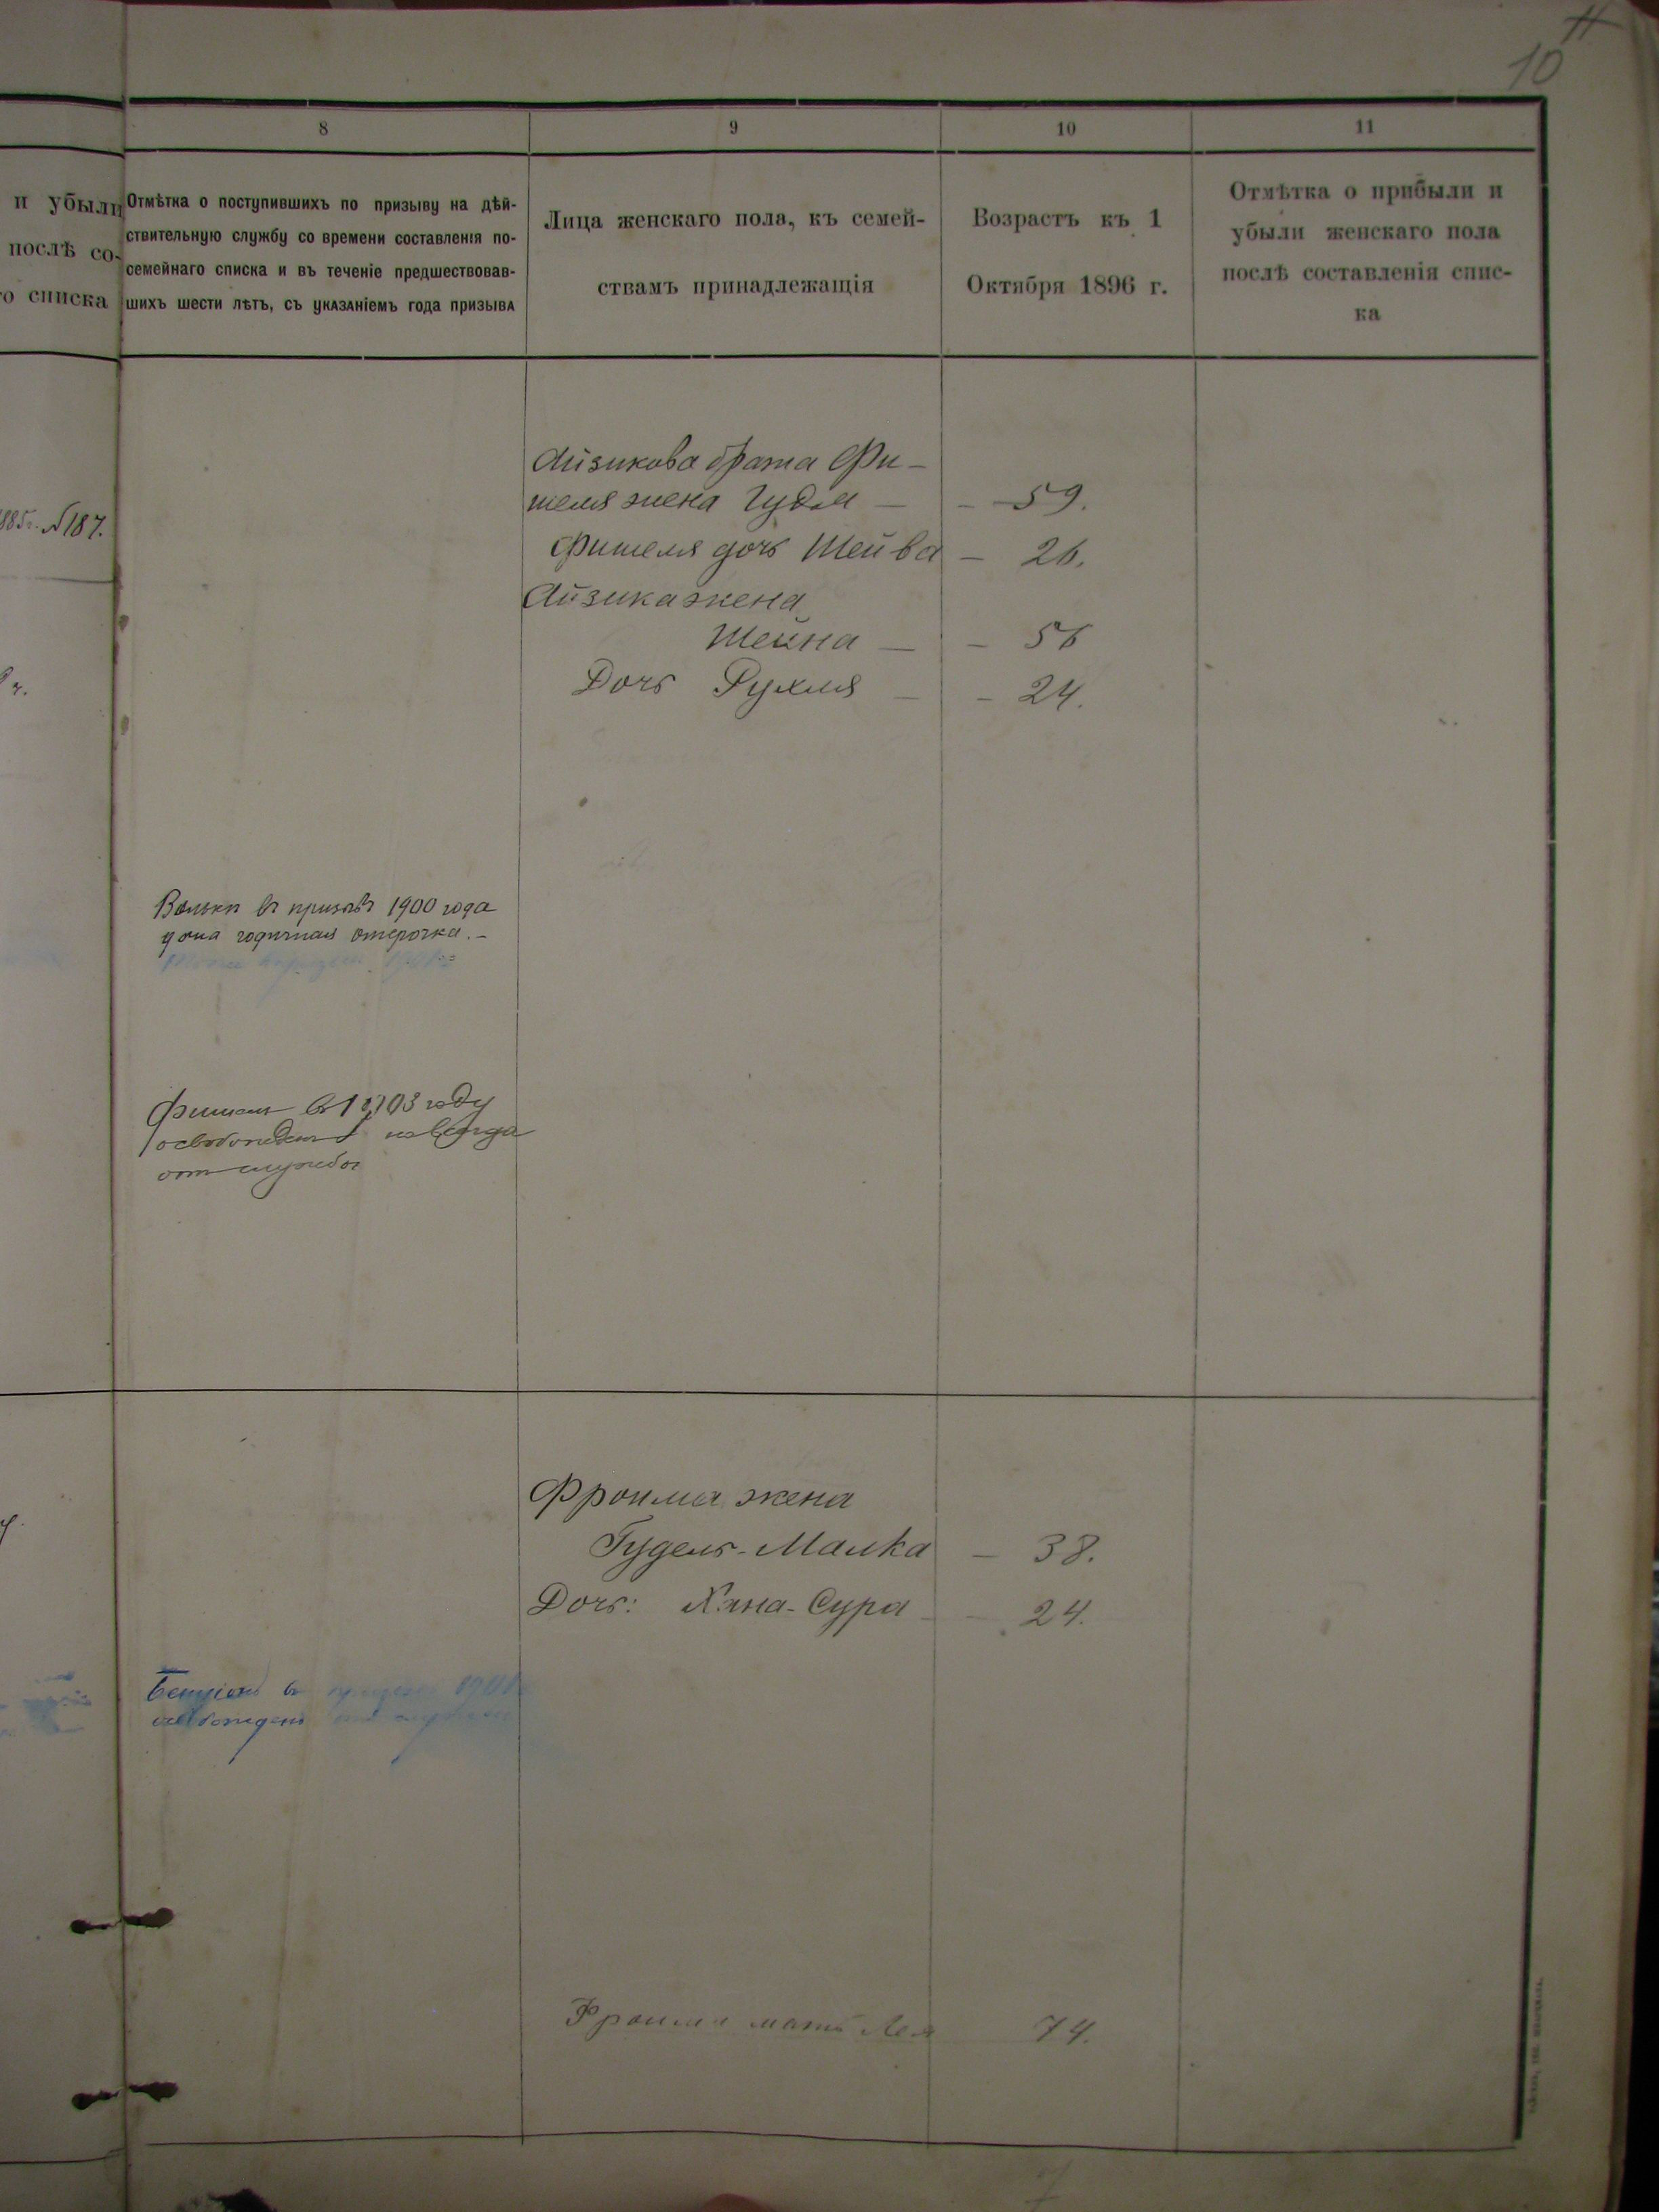 11
10
8
9
10
11
и убыли
послѣ со-
о списка
Отмѣтка о поступившихъ по призыву на дѣй-
ствительную службу со времени составленія по-
семейнаго списка и въ теченіе предшествовав-
шихъ шести лѣтъ, съ указаніемъ года призыва
Лица женскаго пола, къ семей-
ствамъ принадлежащія
Возрастъ къ 1
Октября 1896 г.
Отмѣтка о прибыли и
убыли женскаго пола
послѣ составленія спис-
ка
Айзикова брата Фи-
шеля жена Гудля — 59.
885г. № 187.
Фишеля дочь Шейва — 26.
Айзика жена
Шейна — 56
Дочь Рухля — 24.
Вольки въ призывъ 1900 года
дана годичная отсрочка. —
Фишель въ 1903 году
освобожденъ навсегда
отъ службы
Фроима жена
Гудель-Малка — 38.
Дочь: Хана-Сура — 24.
Бенціонъ въ 1901
освобожденъ
Фроима мать Лея 74.